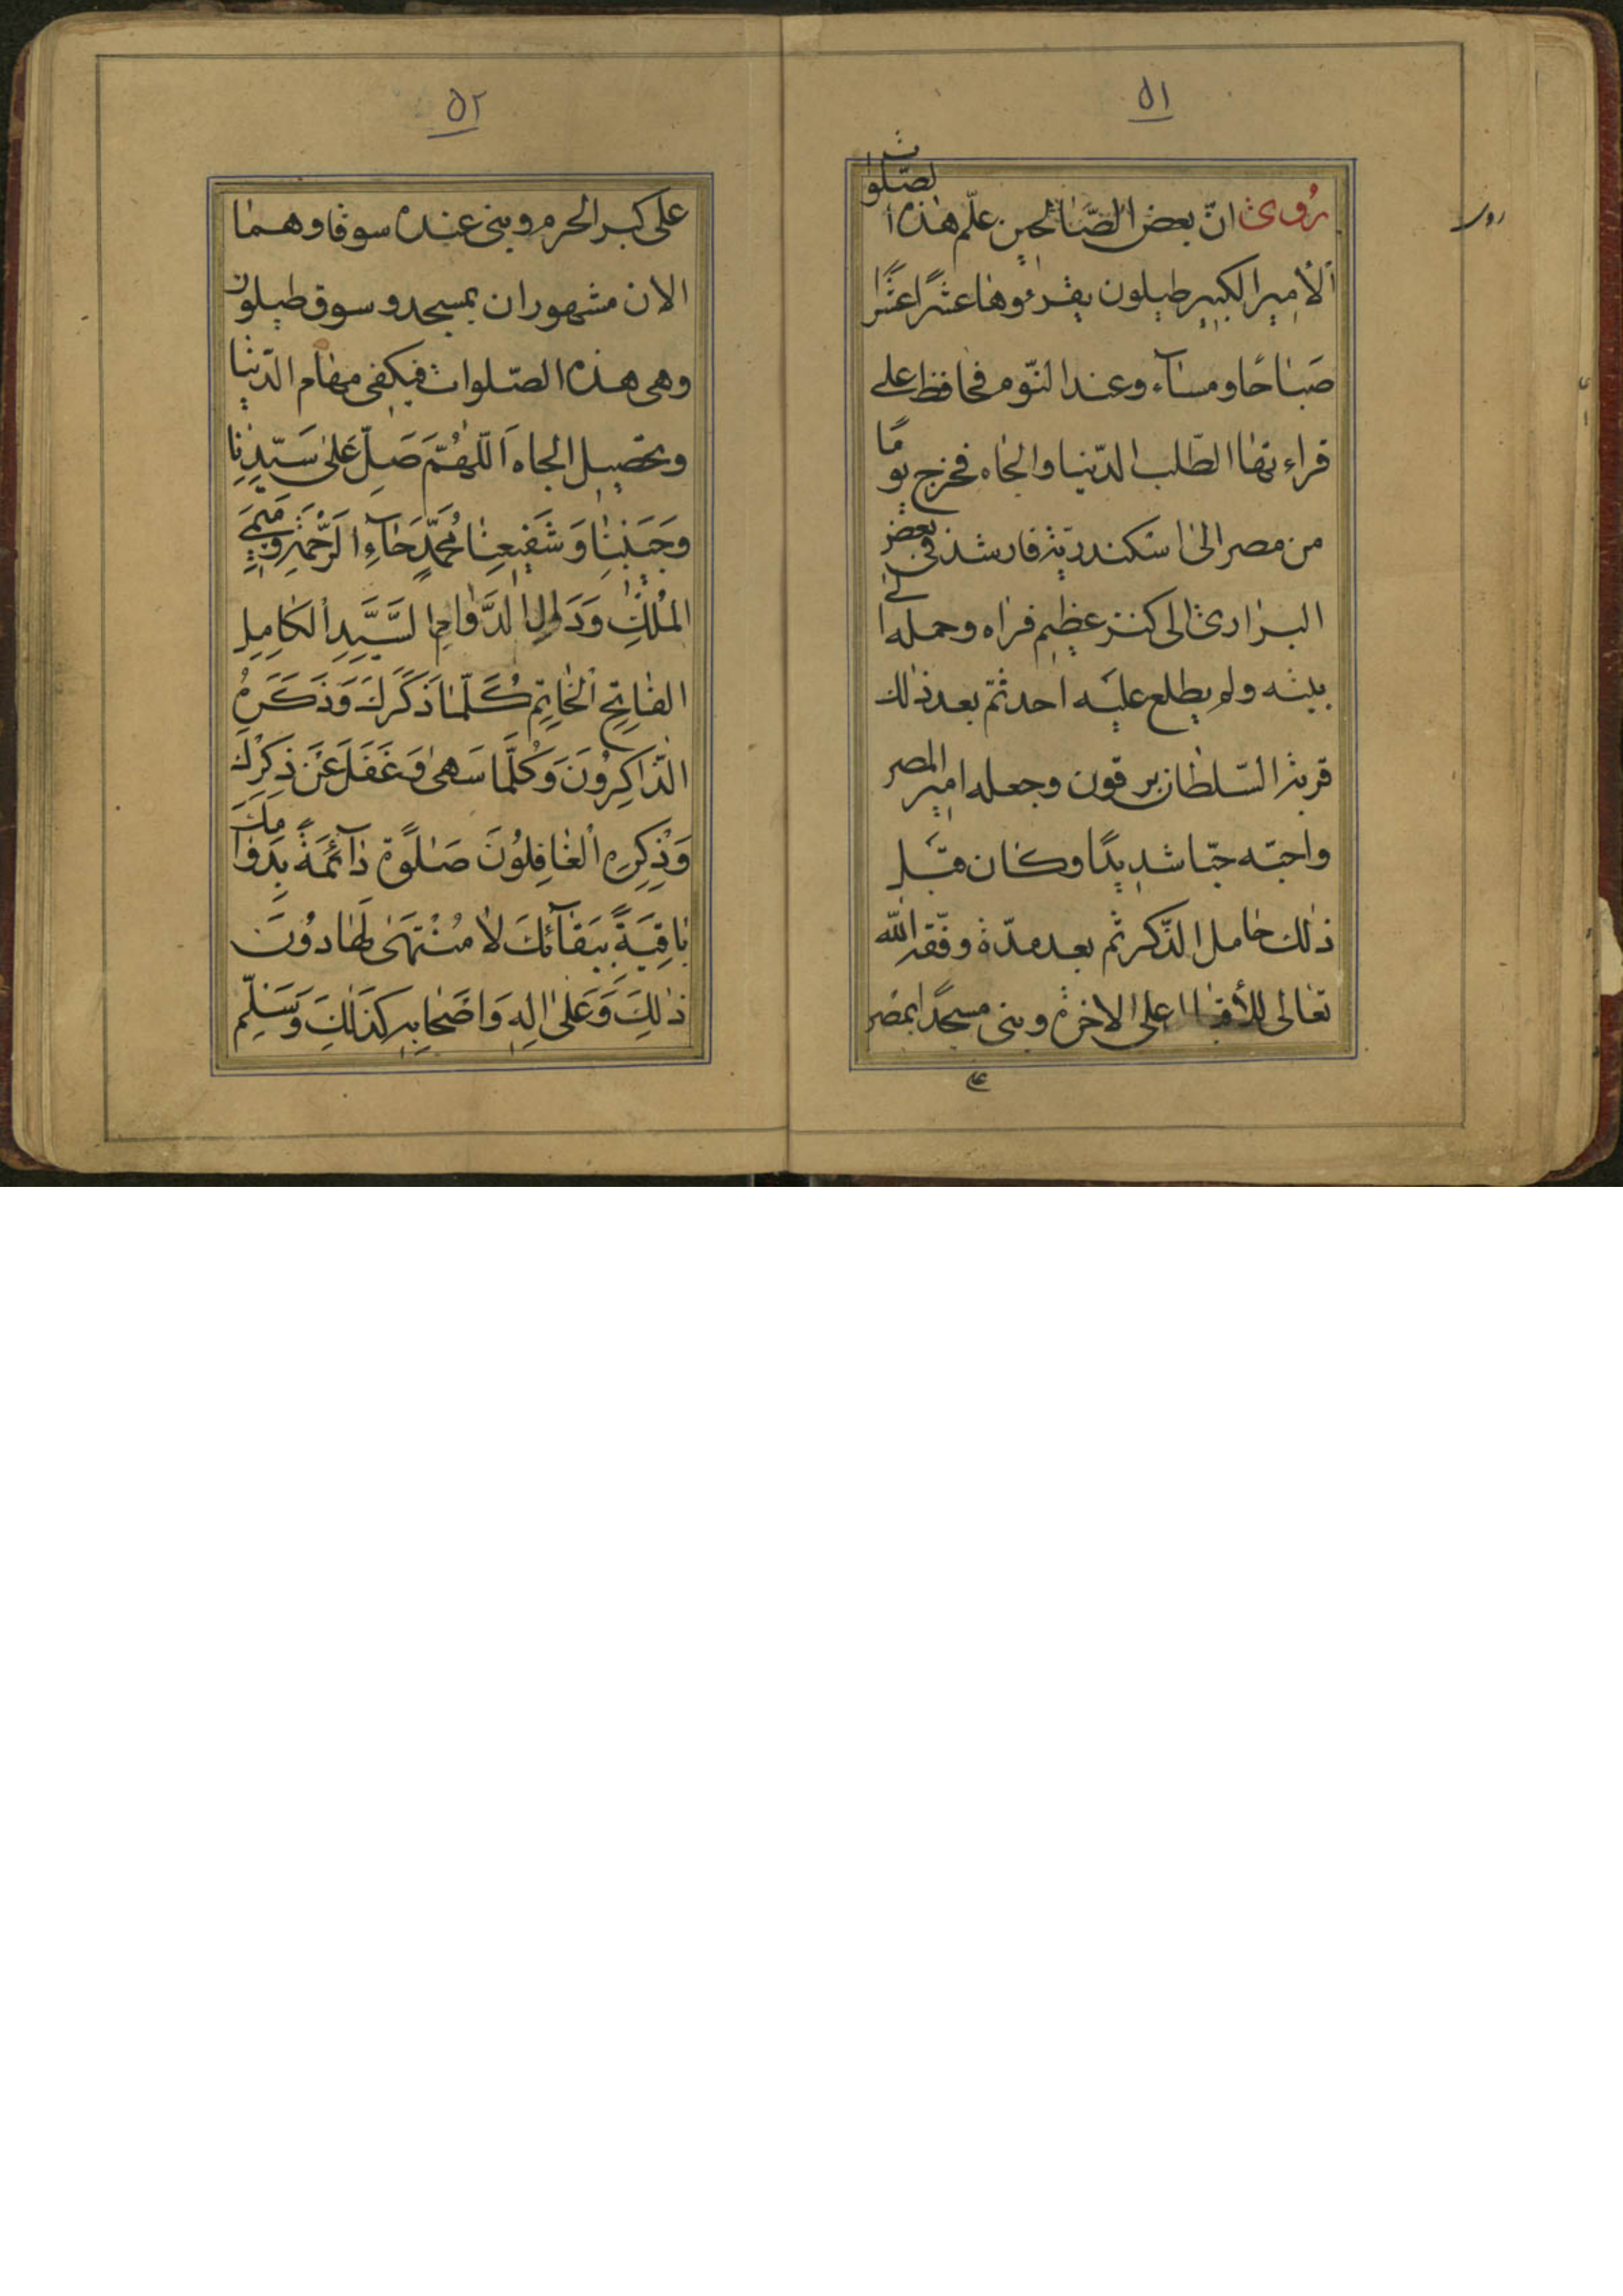 ٥١
روى انّ بعض الصّالحين علّم هذه الصّلوات
الأمير الكبير طيلون يقرءوها عشرًا عشرًا
صباحًا ومسآء وعند النّوم فحافظ على
قراءتها الطلب الدّنيا والجاه فخرج يومًا
من مصر الى اسكندريّة فارشد فى بعض
البرارى الى كنز عظيم فراه وحمله الى
بيته ولم يطلع عليه احد ثمّ بعد ذلك
قربه السّلطان برقون وجعله امير المصر
واحبّه حبّا شديدًا وكان قبل
ذلك خامل الذّكر ثم بعد مدّة وفّقه اللّه
تعالى على الاخرة وبنى مسجدًا بمصر
على
رو
٥٢
على كبر الحرم وبنى عنده سوقا وهما
الان مشهوران بمسجد و سوق طيلون
وهى هذه الصّلوات فيكفى مهام الدّنيا
وتحصيل الجاه اَللّهُمَّ صَلِّ عَلى سَيِّدِنا
وَحَبيبِنا وَشَفيعِنا مُحَمَّدٍ حَآءِ الرَّحْمَةِ وَميمَىِ
المُلْكِ وَدَالِ الدَّوامِ السَّيِّدِ الْكامِلِ
الفاتِحِ الْخاتِمِ كُلَّما ذَكَرَكَ وَذَكَرَهُ
الذّاكِرُونَ وَكُلَّما سَهى وَغَفَلَ عَنْ ذِكْرِكَ
وَذِكْرِهِ الْغافِلُونَ صَلوةً دآئِمَةً بِدَوامِكَ
باقِيَةً بِبَقآئِكَ لا مُنْتَهى لَها دُونَ
ذلِكَ وَعَلى الِهِ وَاَصْحابِهِ كَذلِكَ وَسَلِّم